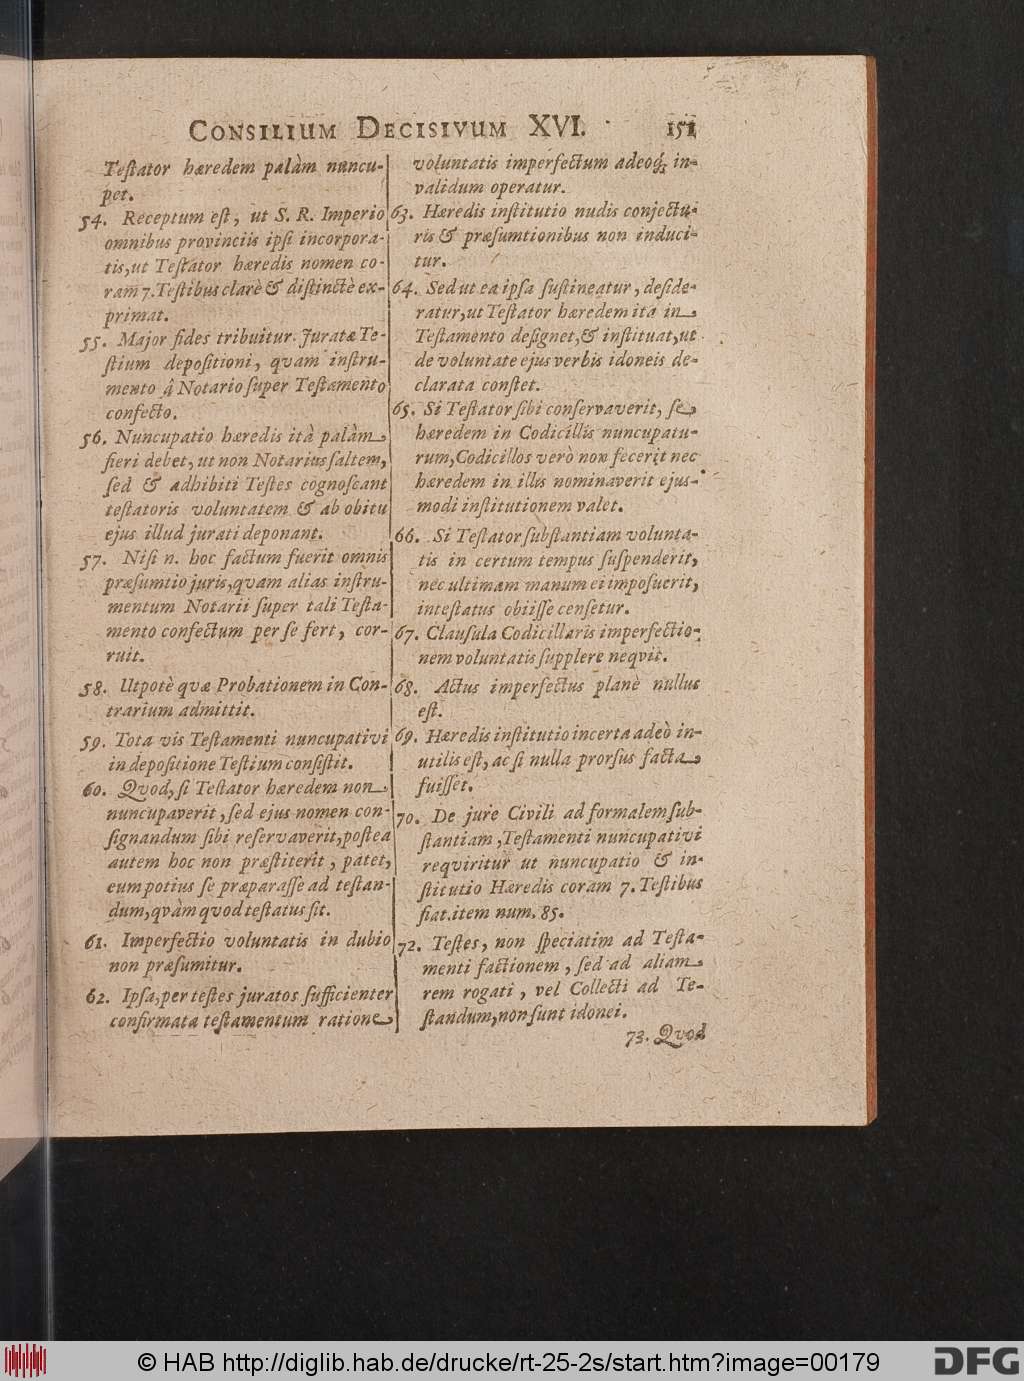 CONSILIUM DECISIVUM XVI. 151
Teſtator hæredem palàm nuncu-
pet.
54. Receptum eſt, ut S. R. Imperio
omnibus provinciis ipſi incorpora-
tis, ut Teſtator hæredis nomen co-
ram 7. Teſtibus clarè & diſtinctè ex-
primat.
55. Major fides tribuitur Juratæ Te-
ſtium depoſitioni, quam inſtru-
mento â Notario ſuper Teſtamento
confecto.
56. Nuncupatio hæredis ità palàm
fieri debet, ut non Notarius ſaltem,
ſed & adhibiti Teſtes cognoſcant
teſtatoris voluntatem & ab obitu
ejus illud jurati deponant.
57. Niſi n. hoc factum fuerit omnis
præſumtio juris, quam alias inſtru-
mentum Notarii ſuper tali Teſta-
mento confectum per ſe fert, cor-
ruit.
58. Utpotè quæ Probationem in Con-
trarium admittit.
59. Tota vis Teſtamenti nuncupativi
in depoſitione Teſtium conſiſtit.
60. Quod, ſi Teſtator hæredem non
nuncupaverit, ſed ejus nomen con-
ſignandum ſibi reſervaverit, poſtea
autem hoc non præſtiterit, patet,
eum potius ſe præparaſſe ad teſtan-
dum, qvàm quod teſtatus ſit.
61. Imperfectio voluntatis in dubio
non præſumitur.
62. Ipſa, per teſtes juratos ſufficienter
confirmata teſtamentum ratione
voluntatis imperfectum adeoq́; in-
validum operatur.
63. Hæredis inſtitutio nudis conjectu-
ris & præſumtionibus non induci-
tur.
64. Sed ut ea ipſa ſuſtineatur, deſide-
ratur, ut Teſtator hæredem ita in
Teſtamento deſignet, & inſtituat, ut
de voluntate ejus verbis idoneis de-
clarata conſtet.
65. Si Teſtator ſibi conſervaverit, ſe
hæredem in Codicillis nuncupatu-
rum, Codicillos verò non fecerit nec
hæredem in illis nominaverit ejus-
modi inſtitutionem valet.
66. Si Teſtator ſubſtantiam volunta-
tis in certum tempus ſuſpenderit,
nec ultimam manum ei impoſuerit,
inteſtatus obiiſſe cenſetur.
67. Clauſula Codicillaris imperfectio-
nem voluntatis ſupplere neqvit.
68. Actus imperfectus planè nullus
eſt.
69. Hæredis inſtitutio incerta adeò in-
utilis eſt, ac ſi nulla prorſus facta
fuiſſet.
70. De jure Civili ad formalem ſub-
ſtantiam, Teſtamenti nuncupativi
reqviritur ut nuncupatio & in-
ſtitutio Hæredis coram 7. Teſtibus
fiat. item num. 85.
72. Teſtes, non ſpeciatim ad Teſta-
menti factionem, ſed ad aliam
rem rogati, vel Collecti ad Te-
ſtandum, non ſunt idonei.
73. Quod
© HAB http://diglib.hab.de/drucke/rt-25-2s/start.htm?image=00179
DFG